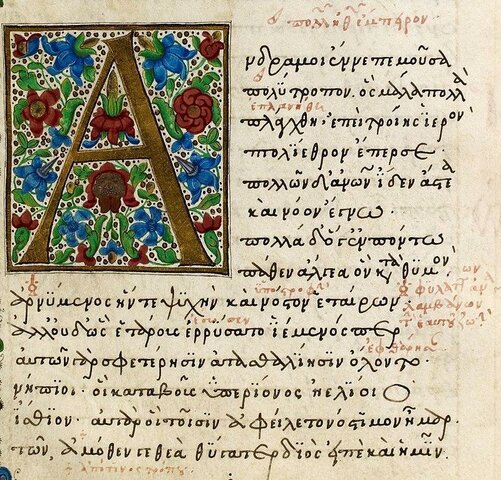 Α
νδρα μοι ἔννεπε μοῦσα
πολύτροπον· ὃς μάλα πολλὰ
ἐπλανήθη
πλάγχθη· ἐπεὶ τροίης ἱερὸν
πτολίεθρον ἔπερσε·
πολλῶν δ' ἀνων ἴδεν ἄστεα
καὶ νόον ἔγνω
πολλὰ δ' ὅγ' ἐν πόντω
πάθεν ἄλγεα ὃν κατὰ θυμὸν
ἀρνύμενος ἥν τε ψυχὴν καὶ νόστον ἑταίρων
ἀλλ' οὐδ' ὣς ἑτάρους ἐρρύσατο ἱέμενός περ
αὐτῶν γὰρ σφετέρησιν ἀτασθαλίησιν ὄλοντο
νήπϊοι· οἳ κατὰ βοῦς ὑπερίονος ἠελίοιο
ἤσθιον· αὐτὰρ ὁ τοῖσιν ἀφείλετο νόστιμον ἦμαρ·
τῶν ἁμόθεν γε θεὰ θύγατερ διὸς εἰπὲ καὶ ἡμῖν·